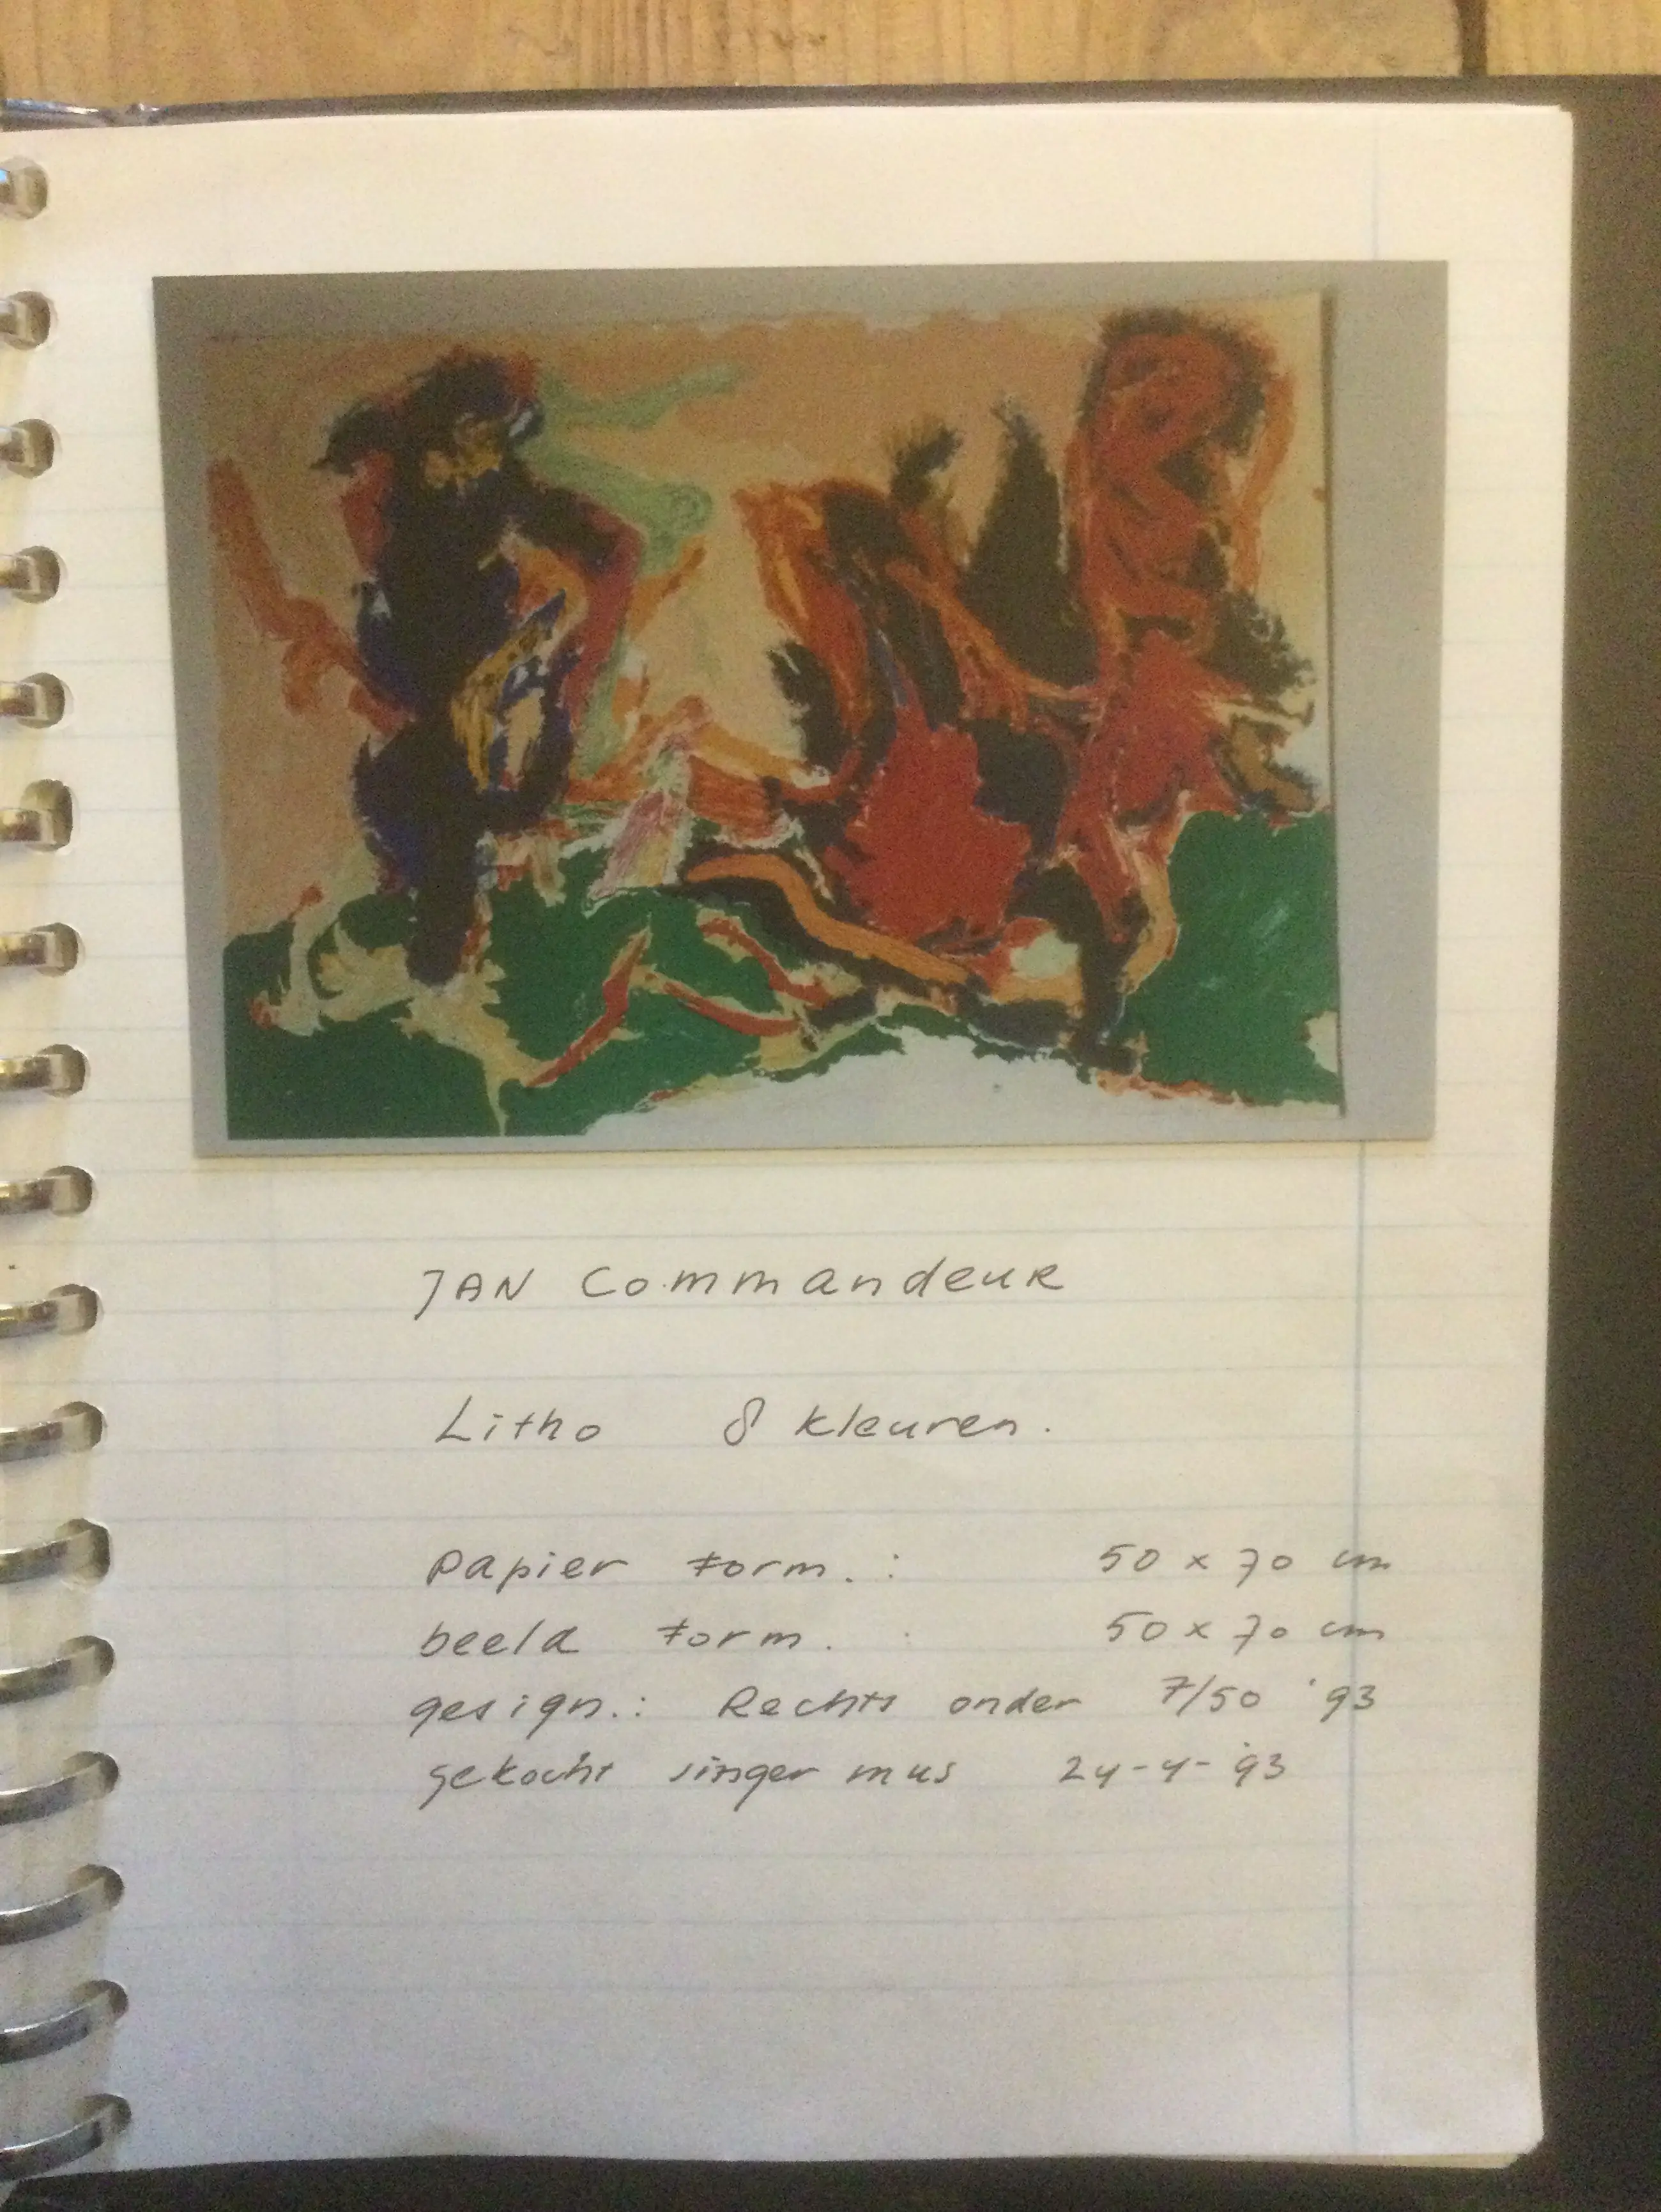 JAN Commandeur
Litho 8 kleuren.
papier form. : 50 x 70 cm
beeld form. : 50 x 70 cm
gesign.: Rechts onder 7/50 '93
gekocht singer mus 24-4-'93